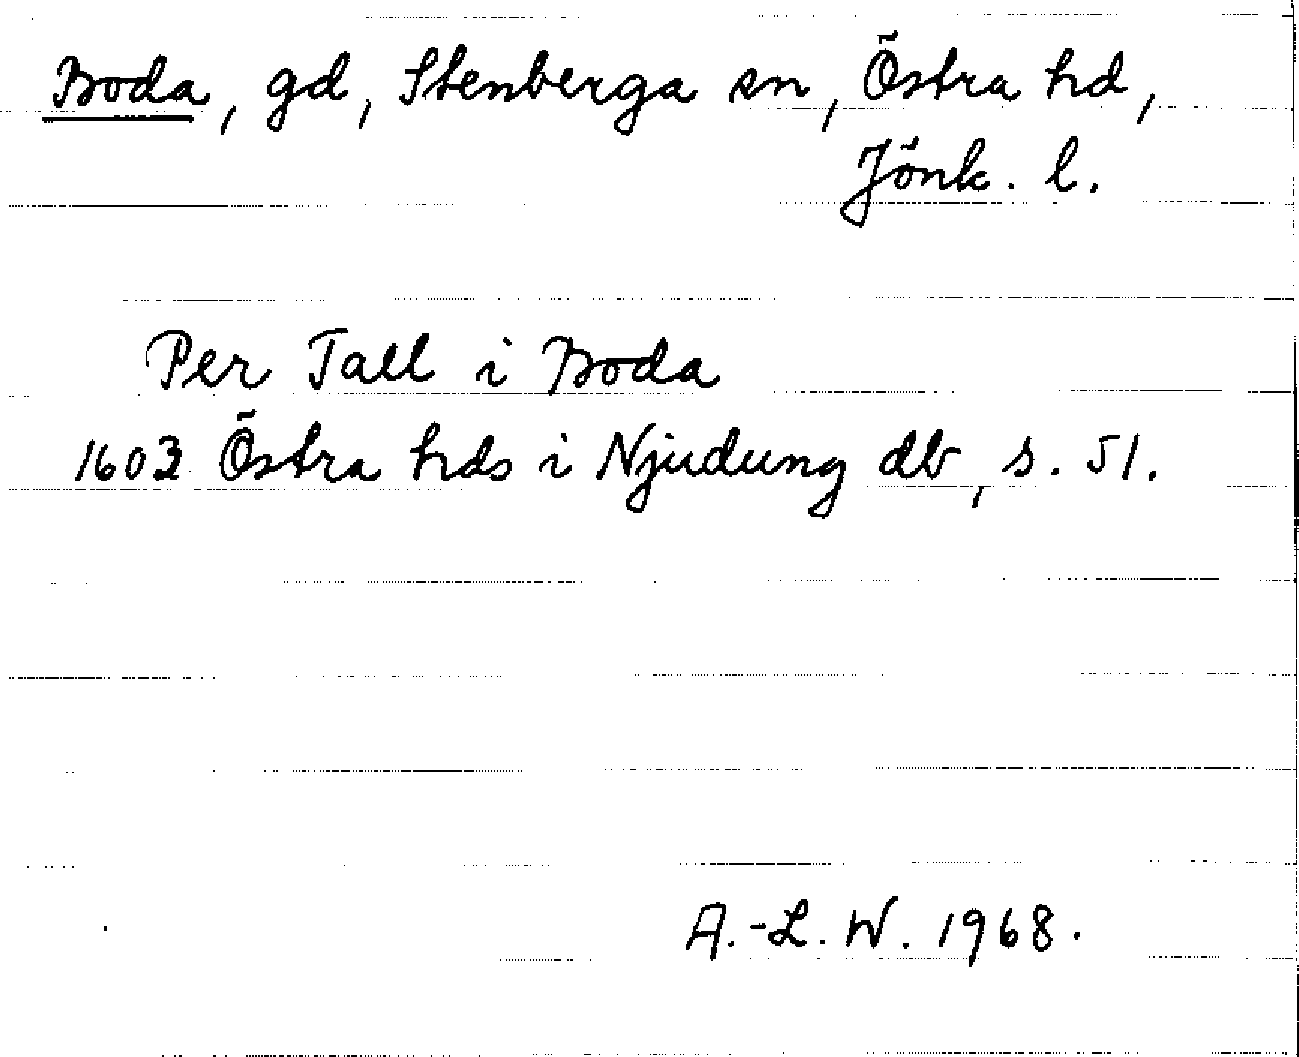 Boda, gd, Stenberga sn, Östra hd,
Jönk. l.
Per Tall i Boda
1603 Östra hds i Njudung db, s. 51.
A.-L. W. 1968.